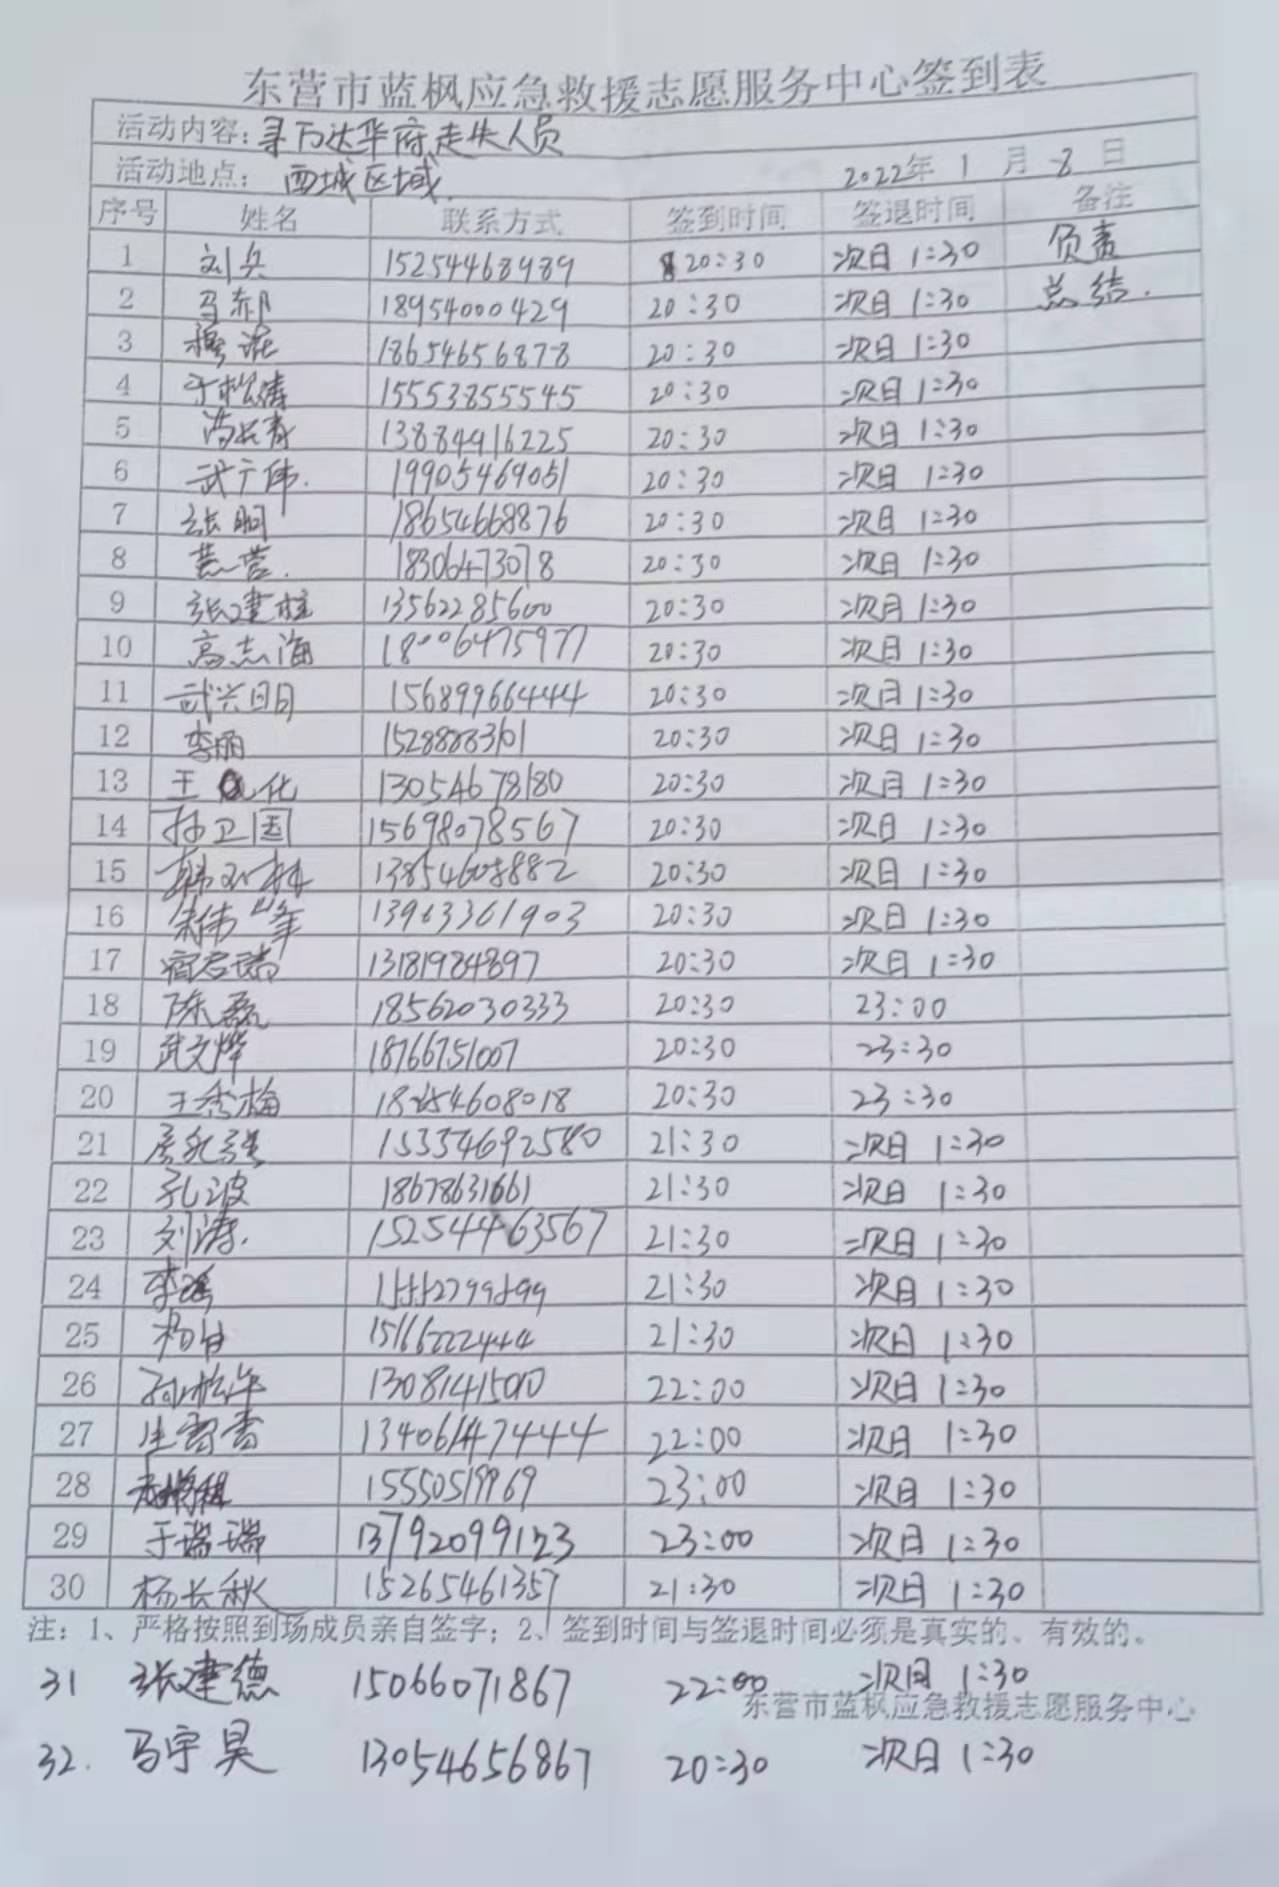 东营市蓝枫应急救援志愿服务中心签到表
活动内容：寻万达华府走失人员
活动地点：西城区域 2022年1月8日
序号 姓名 联系方式 签到时间 签退时间 备注
1 刘兵 15254468989 20:30 次日1:30 负责
2 马郝 18954000429 20:30 次日1:30 总结.
3 穆混 18654656878 20:30 次日1:30
4 于松涛 15553855545 20:30 次日1:30
5 冯长青 13884916225 20:30 次日1:30
6 武广伟. 19905469051 20:30 次日1:30
7 张明 18654668876 20:30 次日1:30
8 营. 18306473078 20:30 次日1:30
9 张建柱 13562285600 20:30 次日1:30
10 高志海 18006475977 20:30 次日1:30
11 武兴明 15689966444 20:30 次日1:30
12 李丽 15288883101 20:30 次日1:30
13 王化 13054678180 20:30 次日1:30
14 孙卫国 15698078567 20:30 次日1:30
15 韩双林 13854608882 20:30 次日1:30
16 宋伟峰 13963361903 20:30 次日1:30
17 宿君瑞 13181984897 20:30 次日1:30
18 陈磊 18562030333 20:30 23:00
19 武文烨 18766751007 20:30 23:30
20 王秀梅 18254608018 20:30 23:30
21 房永强 15354692580 21:30 次日1:30
22 孔波 18678631661 21:30 次日1:30
23 刘涛. 152544463567 21:30 次日1:30
24 李瑶 15552799899 21:30 次日1:30
25 杨 15166222444 21:30 次日1:30
26 孙松年 13081415010 22:00 次日1:30
27 生常青 13406147444 22:00 次日1:30
28 15550519969 23:00 次日1:30
29 于瑞瑞 13792099123 23:00 次日1:30
30 杨长秋 15265461357 21:30 次日1:30
注：1、严格按照到场成员亲自签字；2、签到时间与签退时间必须是真实的、有效的。
31 张建德 15066071867 22:00 次日1:30
东营市蓝枫应急救援志愿服务中心
32. 马宇昊 13054656867 20:30 次日1:30